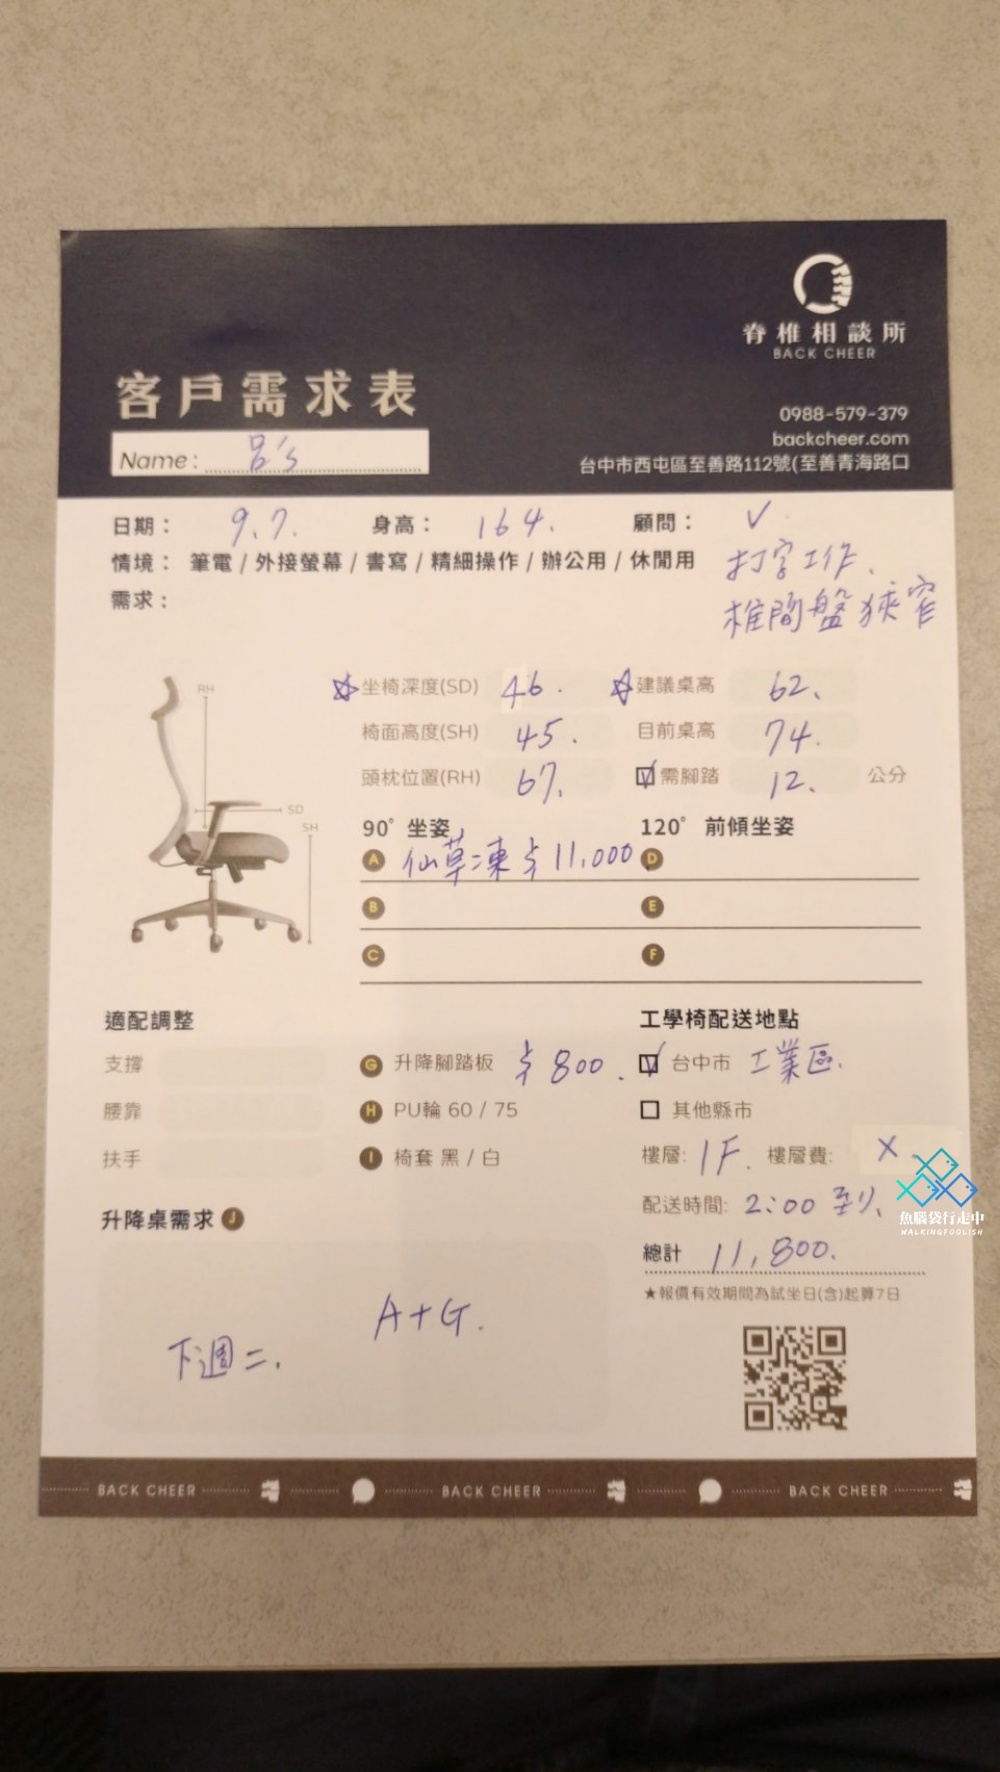 脊椎相談所
BACK CHEER
客戶需求表
0988-579-379
backcheer.com
Name: 呂's
台中市西屯區至善路112號(至善青海路口
日期： 9.7. 身高： 164. 顧問： V
情境： 筆電 / 外接螢幕 / 書寫 / 精細操作 / 辦公用 / 休閒用 打字工作、
需求： 椎間盤狹窄
RH
SD
SH
☆坐椅深度(SD) 46. ☆建議桌高 62、
椅面高度(SH) 45. 目前桌高 74.
頭枕位置(RH) 67. ☑需腳踏 12、 公分
90° 坐姿 120° 前傾坐姿
A 仙草凍 $11,000 D
B E
C F
適配調整 工學椅配送地點
支撐 G 升降腳踏板 $800. ☑ 台中市 工業區.
腰靠 H PU輪 60 / 75 □ 其他縣市
扶手 I 椅套 黑 / 白 樓層: 1F. 樓層費: X.
升降桌需求 J 配送時間: 2:00 到、
魚腦袋行走中
WALKINGFOOLISH
總計 11,800.
★報價有效期間為試坐日(含)起算7日
A+G.
下週二.
BACK CHEER BACK CHEER BACK CHEER